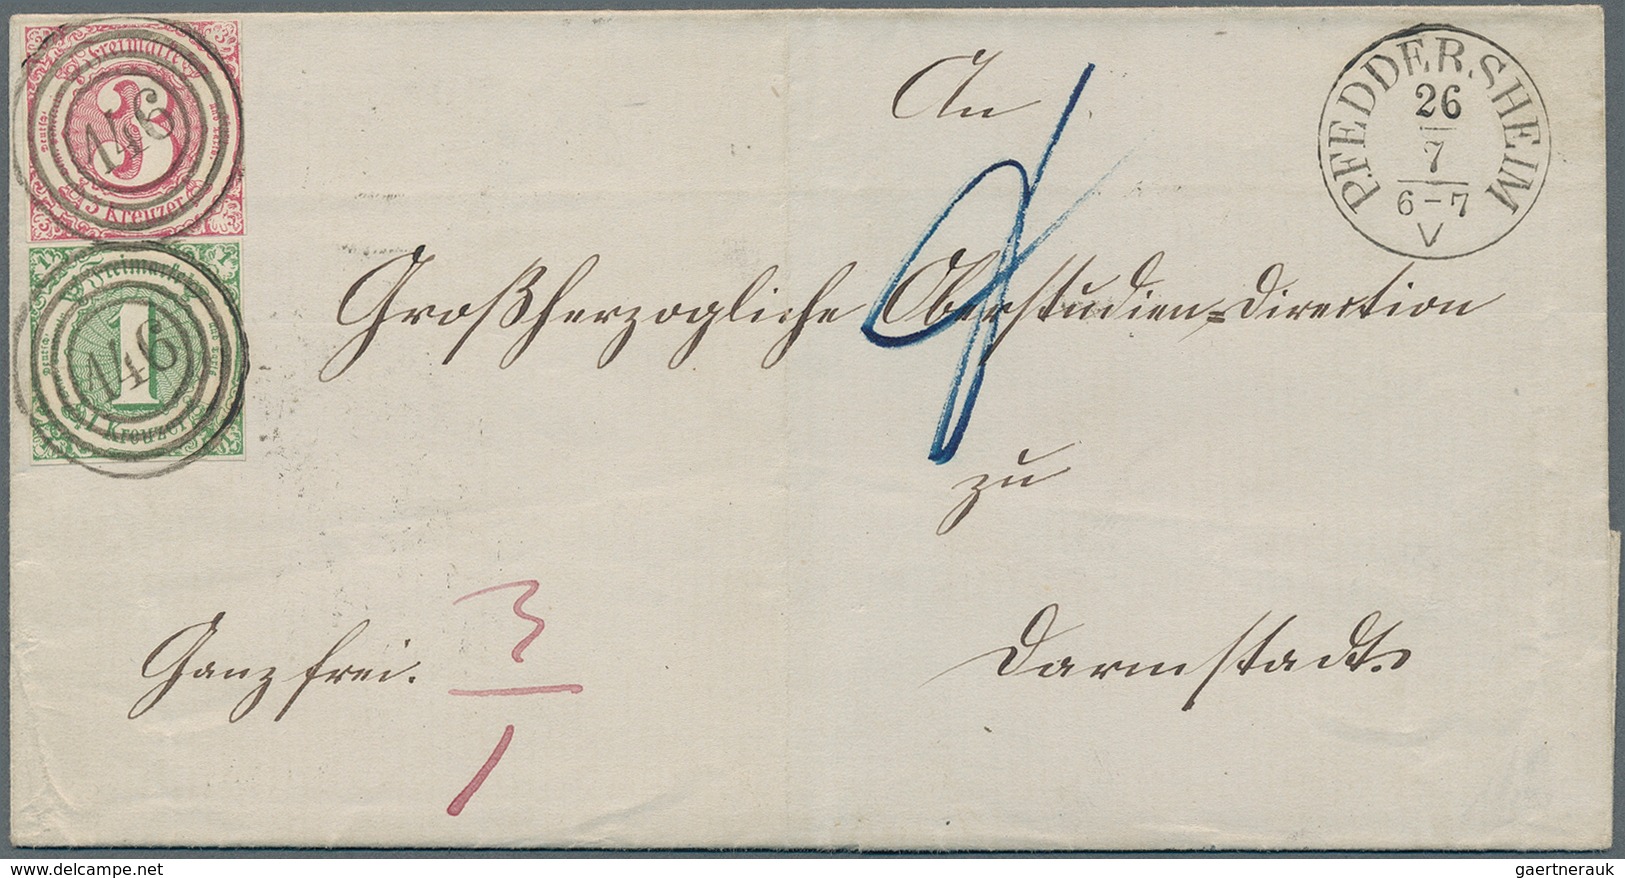 Freimarke
3
3 Kreuzer
146
Freimarke
1
1 Kreuzer
146
PFEDDERSHEIM
26
7
6-7
V
An
Großherzogliche Oberstudien=Direction
zu
Darmstadt.
Ganz frei.
3
1
delcampe.net
gaertnerauk